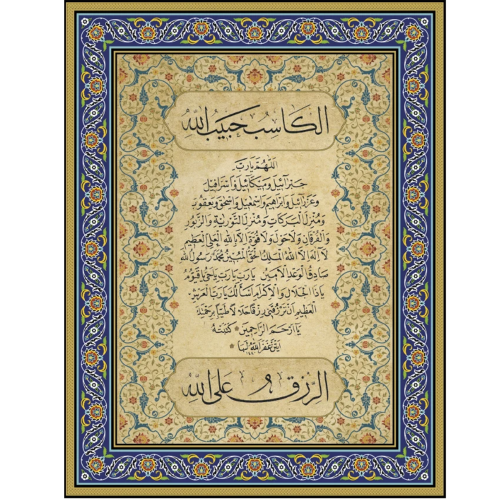 الكاسب حبيب الله
اللهم يا رب
جبرائيل وميكائيل وإسرافيل
وعزرائيل وإبراهيم وإسمعيل وإسحق ويعقوب
ومنزل البركات ومنزل التورية والزبور
والفرقان ولا حول ولا قوة إلا بالله العلي العظيم
لا إله إلا الله الملك الحق المبين محمد رسول الله
صادق الوعد الأمين يا رب يا رب يا حي يا قيوم
يا ذا الجلال والإكرام نسألك يا رب العرش
العظيم أن ترزقني رزقا حلالا طيبا برحمتك
يا أرحم الراحمين كتبته
غفر الله لها
الرزق على الله